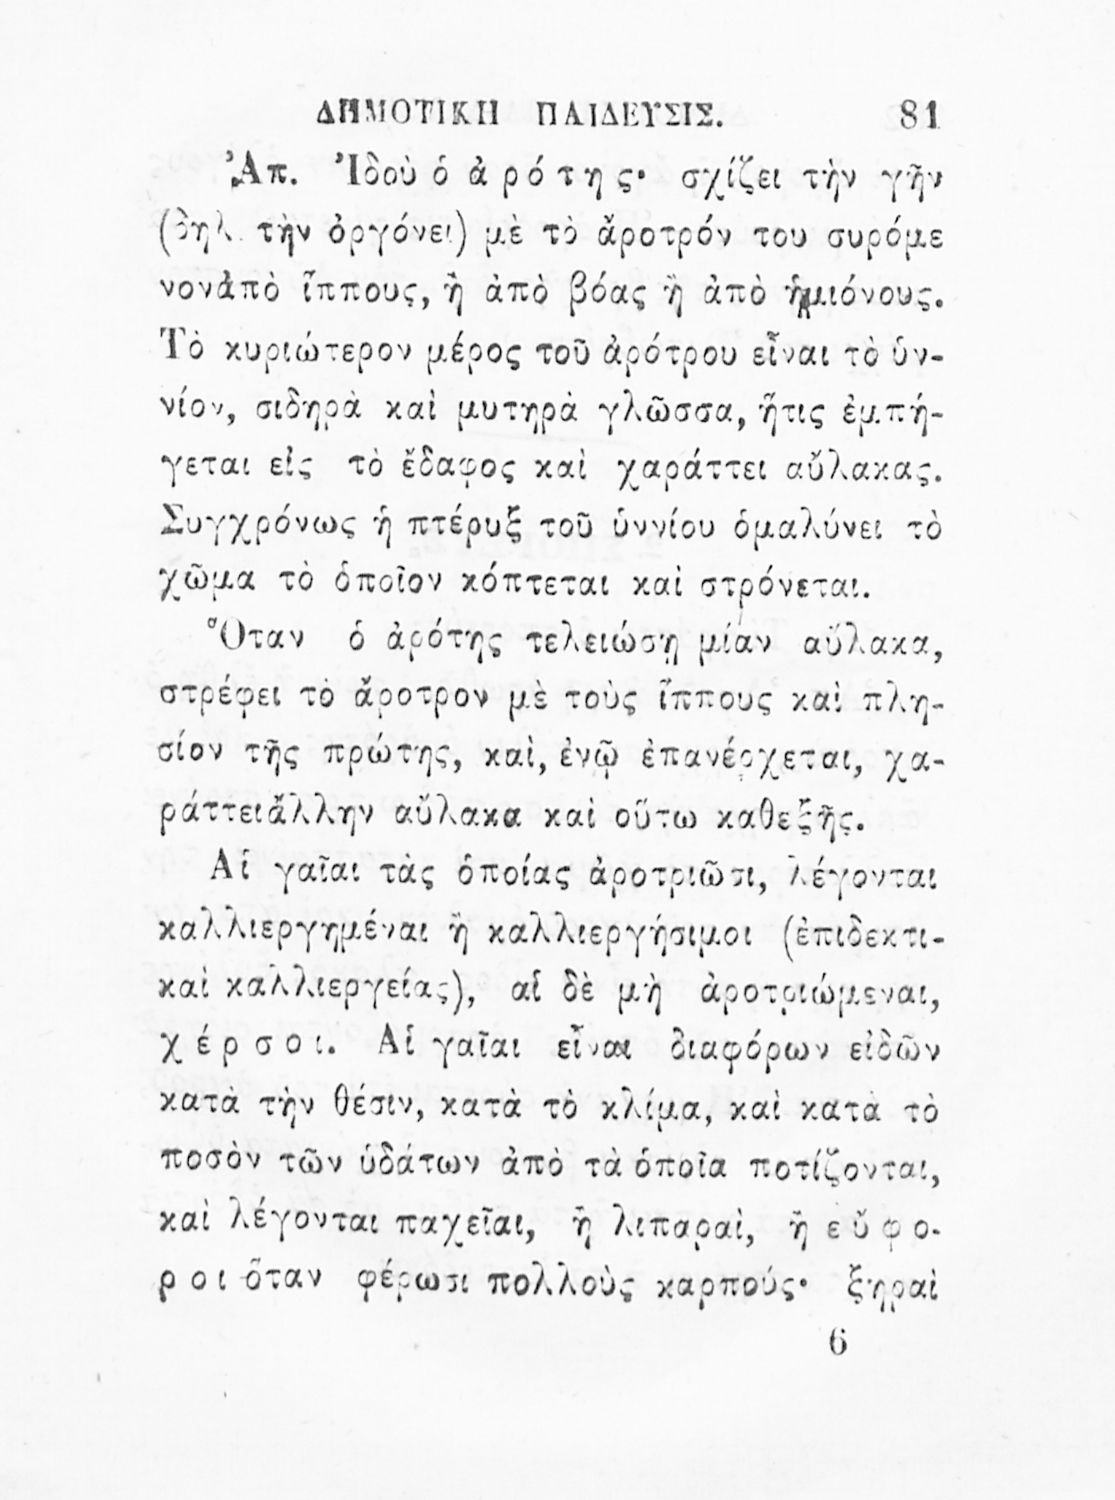 ΔΗΜΟΤΙΚΗ ΠΑΙΔΕΥΣΙΣ. 81
Ἀπ. Ἰδοὺ ὁ ἀ ρ ό τ η ς· σχίζει τὴν γῆν
(δηλ. τὴν ὀργόνει) μὲ τὸ ἄροτρόν του συρόμε
νονἀπὸ ἵππους, ἢ ἀπὸ βόας ἢ ἀπὸ ἡμιόνους.
Τὸ κυριώτερον μέρος τοῦ ἀρότρου εἶναι τὸ ὑν-
νίον, σιδηρὰ καὶ μυτηρὰ γλῶσσα, ἥτις ἐμπή-
γεται εἰς τὸ ἔδαφος καὶ χαράττει αὔλακας.
Συγχρόνως ἡ πτέρυξ τοῦ ὑννίου ὁμαλύνει τὸ
χῶμα τὸ ὁποῖον κόπτεται καὶ στρόνεται.
Ὅταν ὁ ἀρότης τελειώσῃ μίαν αὔλακα,
στρέφει τὸ ἄροτρον μὲ τοὺς ἵππους καὶ πλη-
σίον τῆς πρώτης, καὶ, ἐνῷ ἐπανέρχεται, χα-
ράττειἄλλην αὔλακα καὶ οὕτω καθεξῆς.
Αἱ γαῖαι τὰς ὁποίας ἀροτριῶσι, λέγονται
καλλιεργημέναι ἢ καλλιεργήσιμοι (ἐπιδεκτι-
καὶ καλλιεργείας), αἱ δὲ μὴ ἀροτριώμεναι,
χ έ ρ σ ο ι. Αἱ γαῖαι εἶναι διαφόρων εἰδῶν
κατὰ τὴν θέσιν, κατὰ τὸ κλίμα, καὶ κατὰ τὸ
ποσὸν τῶν ὑδάτων ἀπὸ τὰ ὁποῖα ποτίζονται,
καὶ λέγονται παχεῖαι, ἢ λιπαραὶ, ἢ ε ὔ φ ο-
ρ ο ι ὅταν φέρωσι πολλοὺς καρπούς· ξηραὶ
6